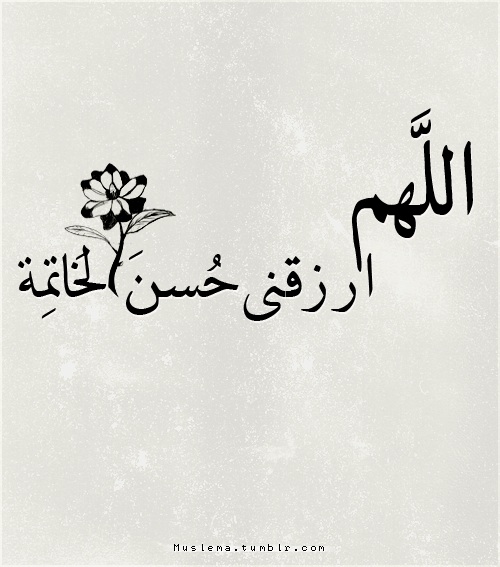 اللَّهم
ارزقنى حُسنَ الخَاتمِة
Muslema.tumblr.com